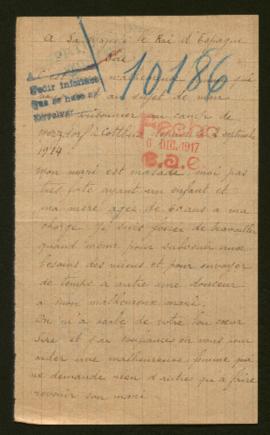 A Sa Majesté le Roi d'Espagne
Sire
10186
Pedir informes
que se hace al
malheureuse
au sujet de mon
prisonnier au camp de
Merzdorf à Cottbus septembre
1914
Fecha
6 DIC. 1917
Mon mari est malade, moi pas
très forte ayant un enfant et
ma mère agée de ans a ma
charge. Je suis forcée de travailler
quand même pour subvenir aux
besoins des miens et pour envoyer
de temps a autre une douceur
a mon malheureux mari
On m'a parlé de votre bon cœur
sire et j'ai confiance en vous pour
aider une malheureuse femme qui
ne demande rien d'autre qu'a faire
revenir son mari